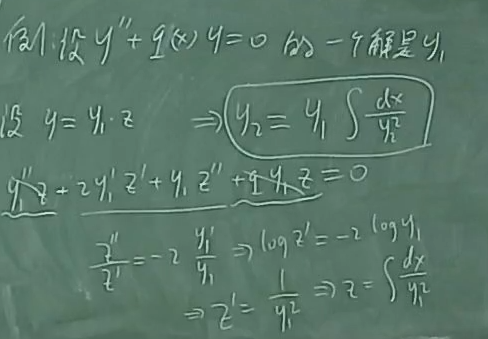 例:设 y″ + q(x) y = 0 的一个解是 y₁
设 y = y₁·z ⇒ y₂ = y₁ ∫ dx/y₁²
y₁″z + 2y₁′z′ + y₁z″ + q y₁z = 0
z″/z′ = -2 y₁′/y₁ ⇒ log z′ = -2 log y₁
⇒ z′ = 1/y₁² ⇒ z = ∫ dx/y₁²